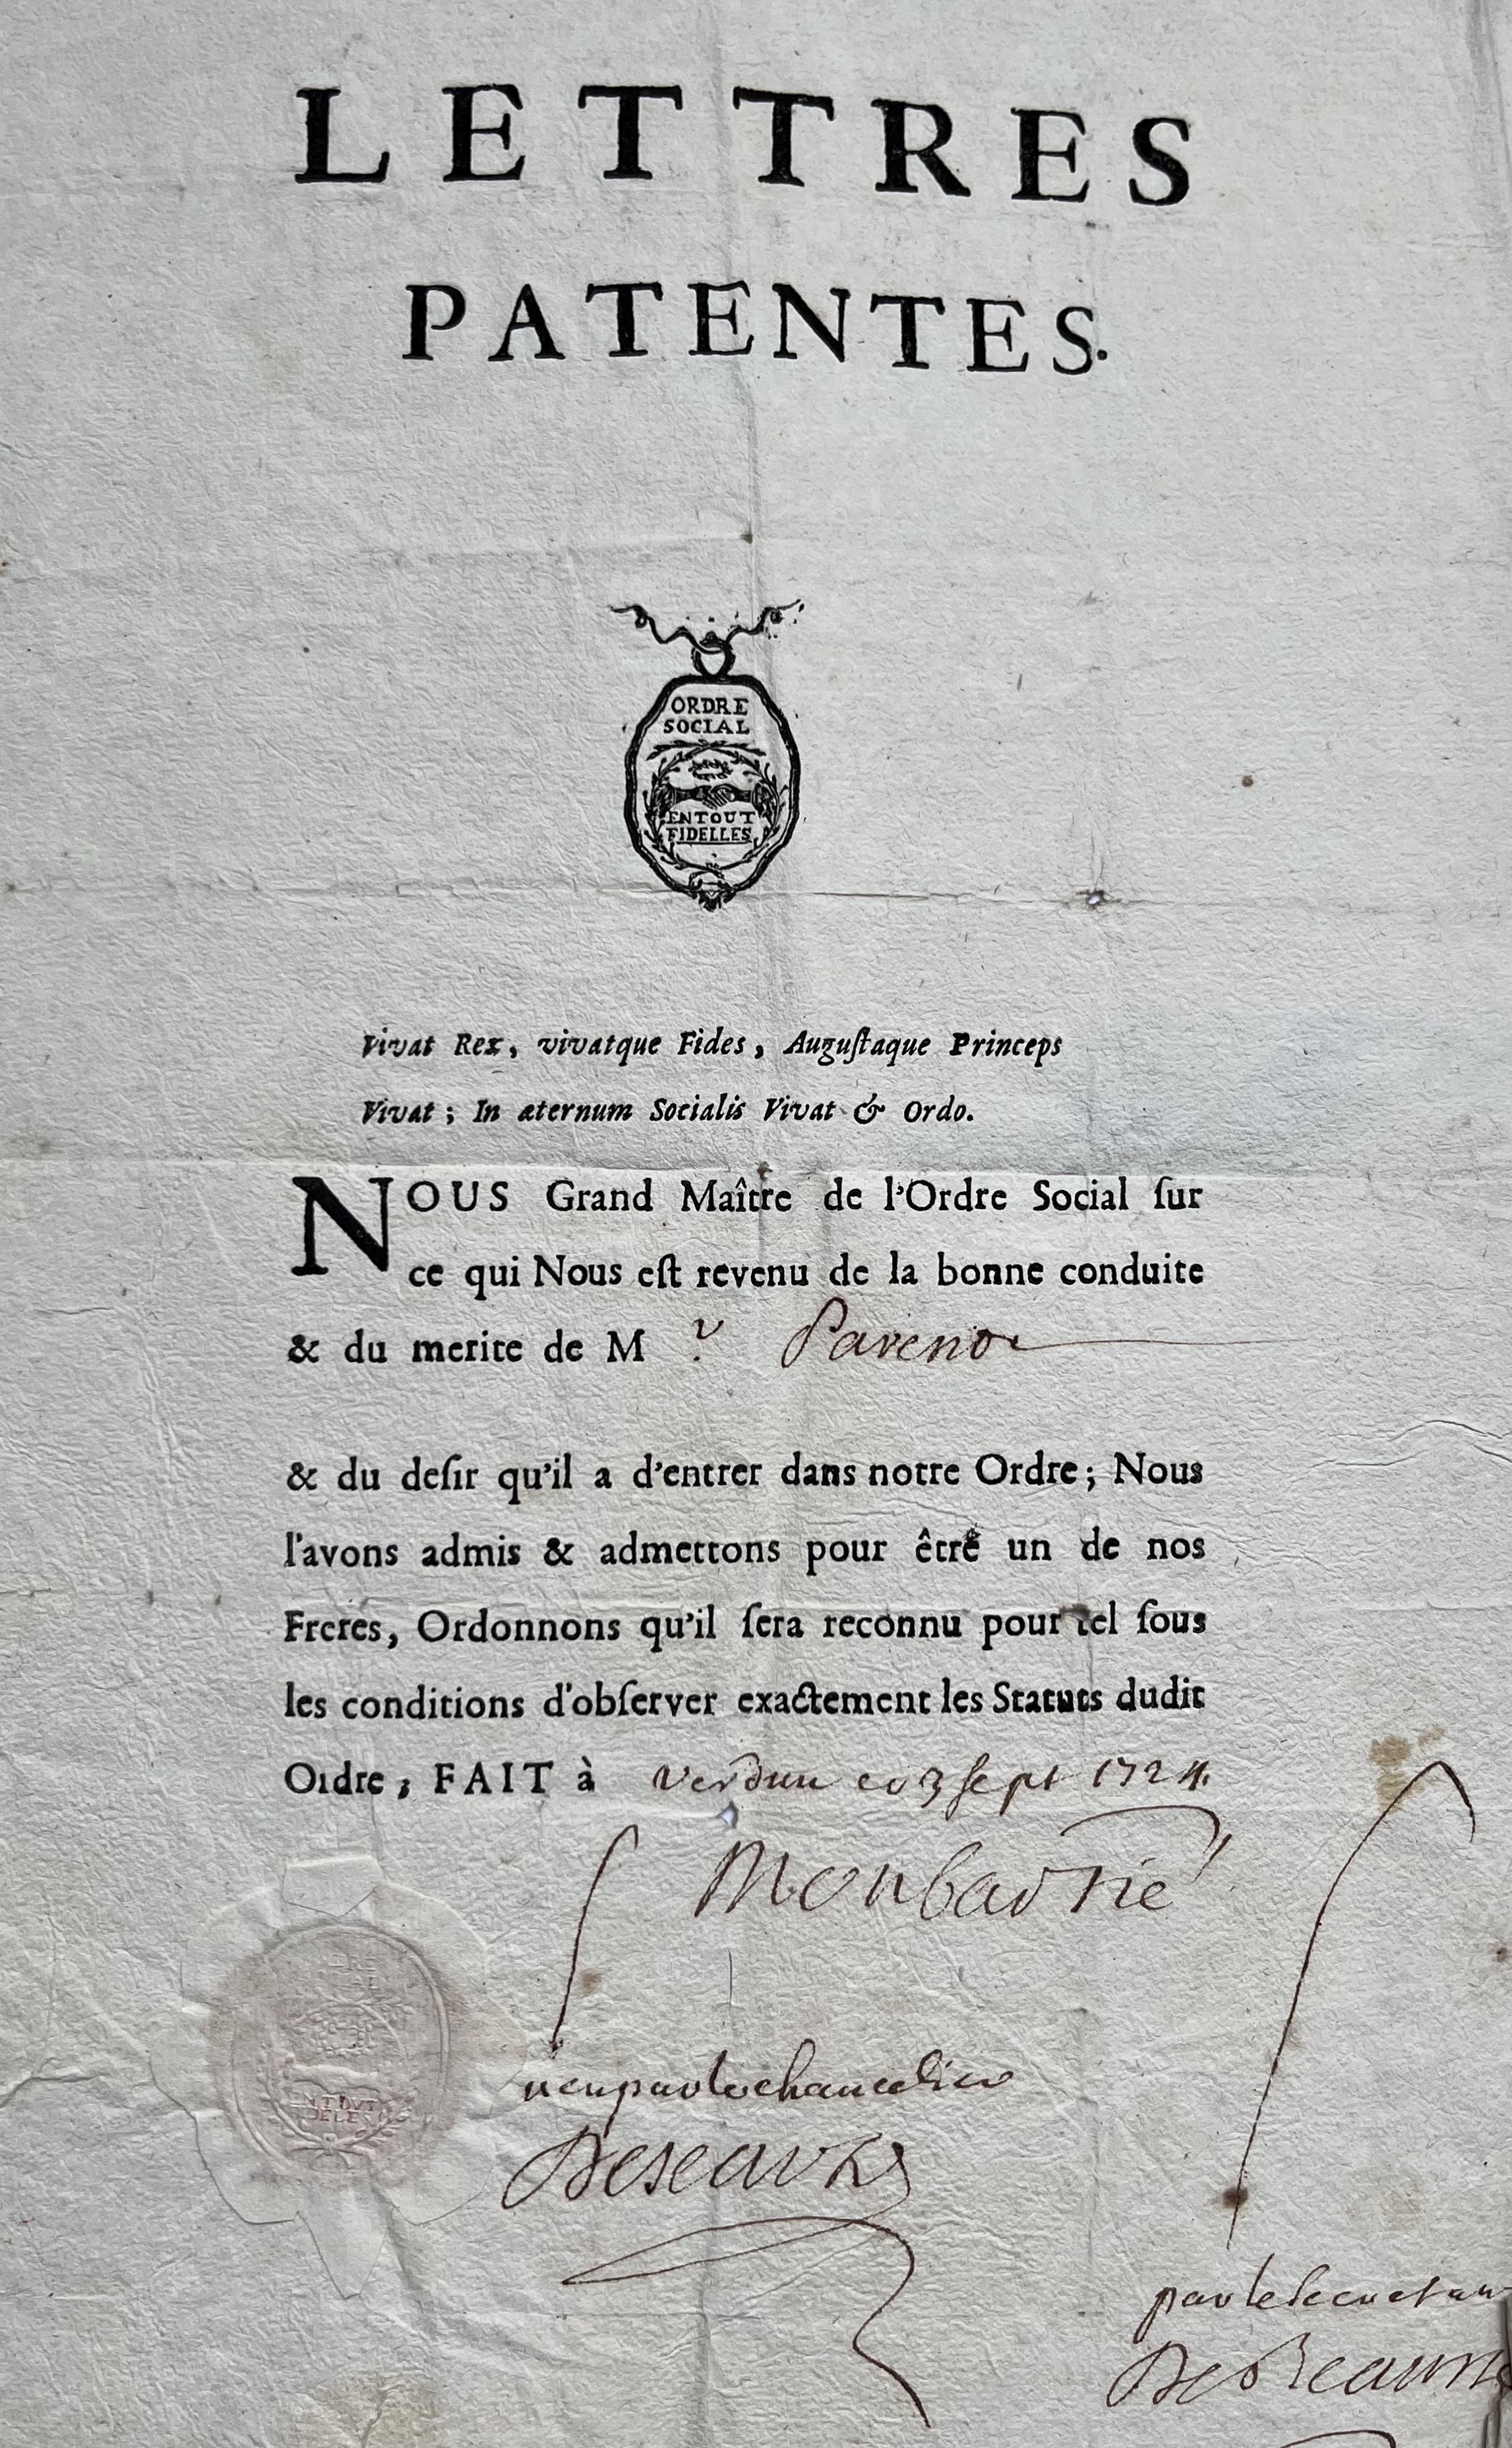 LETTRES
PATENTES.
ORDRE
SOCIAL
EN TOUT
FIDELLES
Vivat Rex, vivatque Fides, Auguſtaque Princeps
Vivat ; In æternum Socialis Vivat & Ordo.
NOUS Grand Maître de l'Ordre Social ſur
ce qui Nous eſt revenu de la bonne conduite
& du merite de M r. Parenot
& du deſir qu'il a d'entrer dans notre Ordre ; Nous
l'avons admis & admettons pour être un de nos
Freres, Ordonnons qu'il ſera reconnu pour tel ſous
les conditions d'obſerver exactement les Statuts dudit
Ordre ; FAIT à Verdun ce 3 sept 1724.
Monbartié
veu par le chancelier
par le secretair
EN TOUT